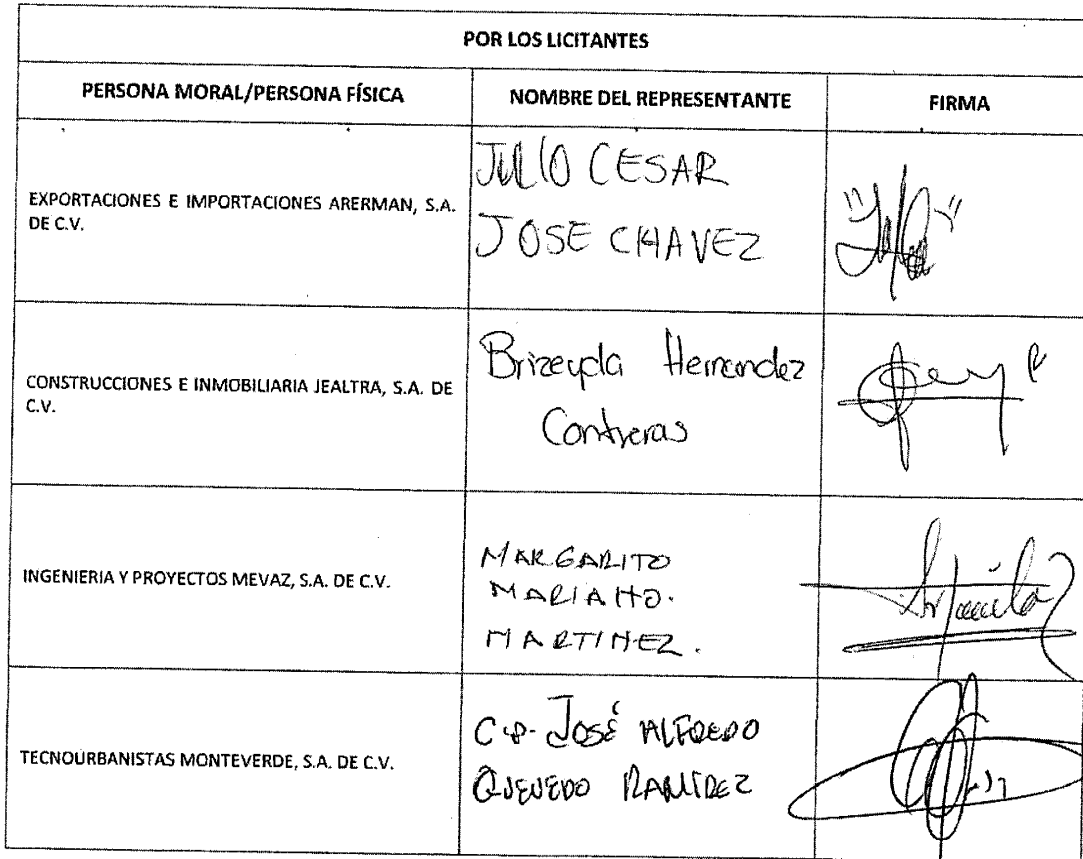 POR LOS LICITANTES
PERSONA MORAL/PERSONA FÍSICA NOMBRE DEL REPRESENTANTE FIRMA
EXPORTACIONES E IMPORTACIONES ARERMAN, S.A.
DE C.V.
JULIO CESAR
JOSE CHAVEZ
CONSTRUCCIONES E INMOBILIARIA JEALTRA, S.A. DE
C.V.
Brizeyda Hernandez
Contreras
INGENIERIA Y PROYECTOS MEVAZ, S.A. DE C.V.
MARGARITO
MARIANO.
MARTINEZ.
TECNOURBANISTAS MONTEVERDE, S.A. DE C.V.
C.P. JOSÉ ALFREDO
QUEVEDO RAMÍREZ